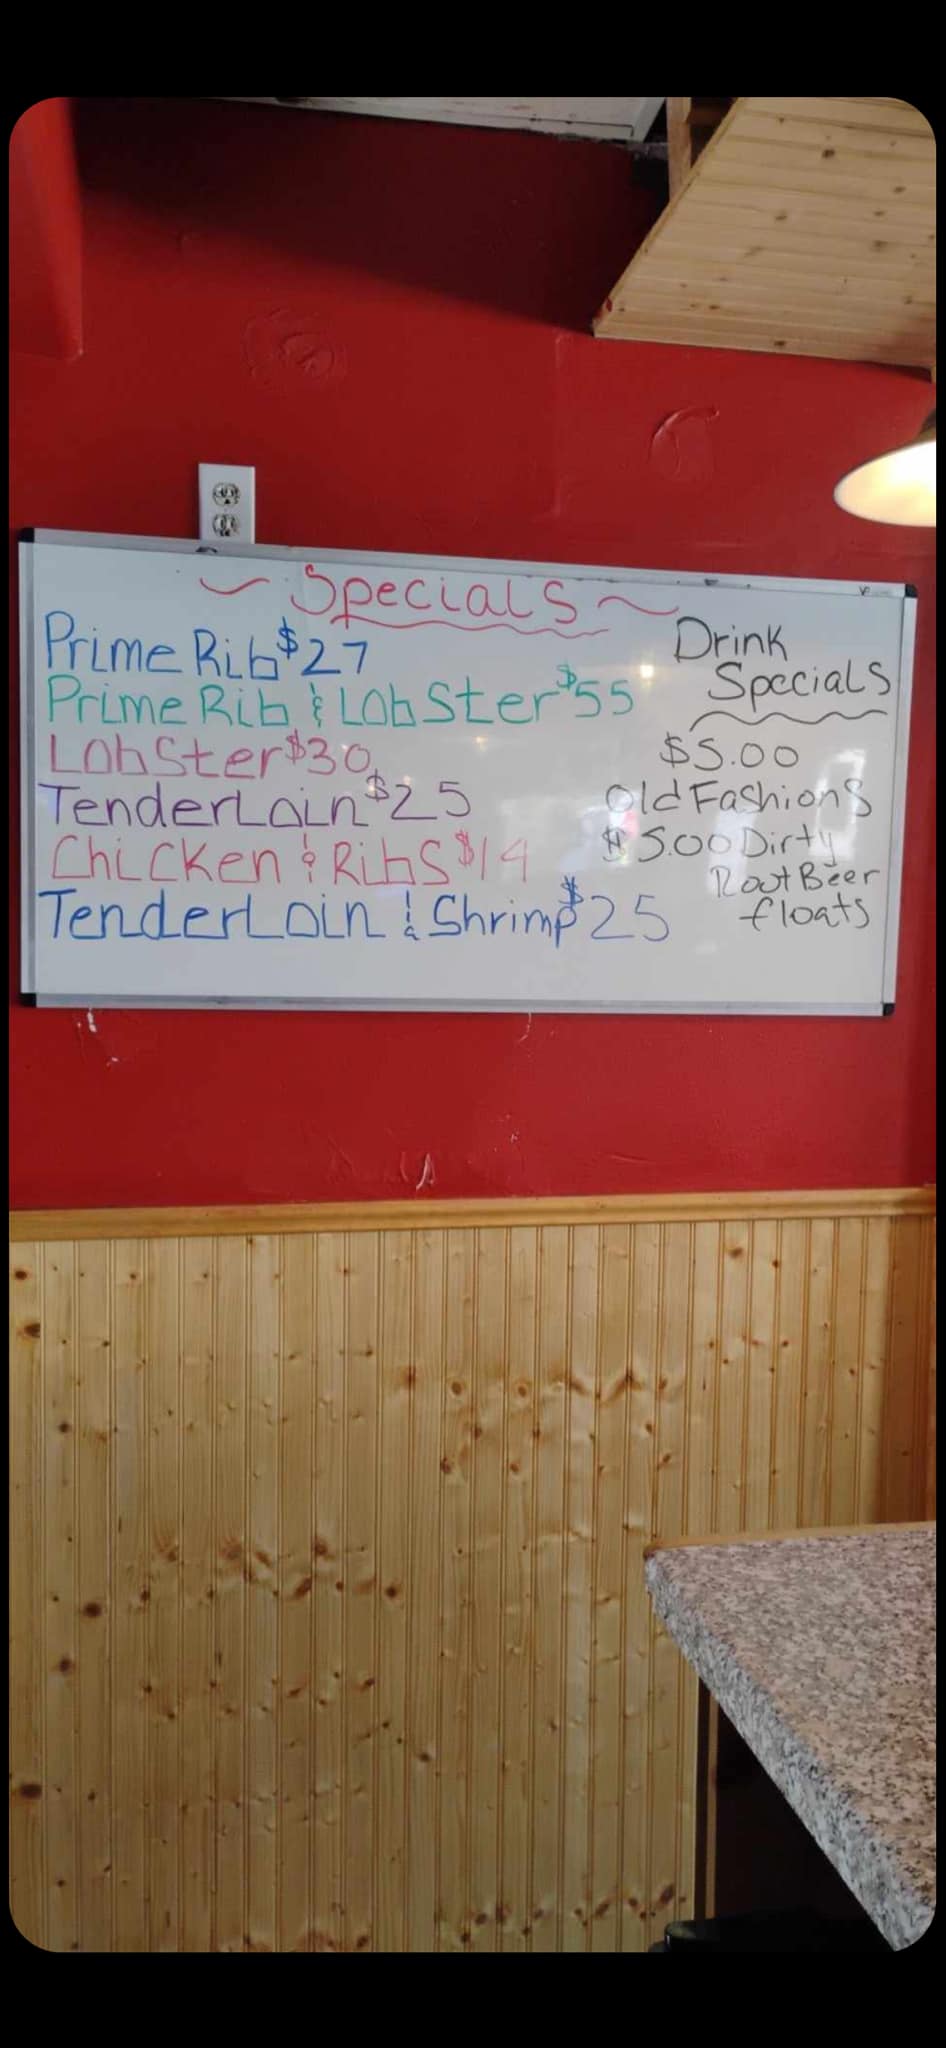 Specials
Prime Rib $27
Prime Rib & Lobster $55
Lobster $30
Tenderloin $25
Chicken & Ribs $14
Tenderloin & Shrimp $25
Drink
Specials
$5.00
Old Fashions
$5.00 Dirty
Root Beer
floats